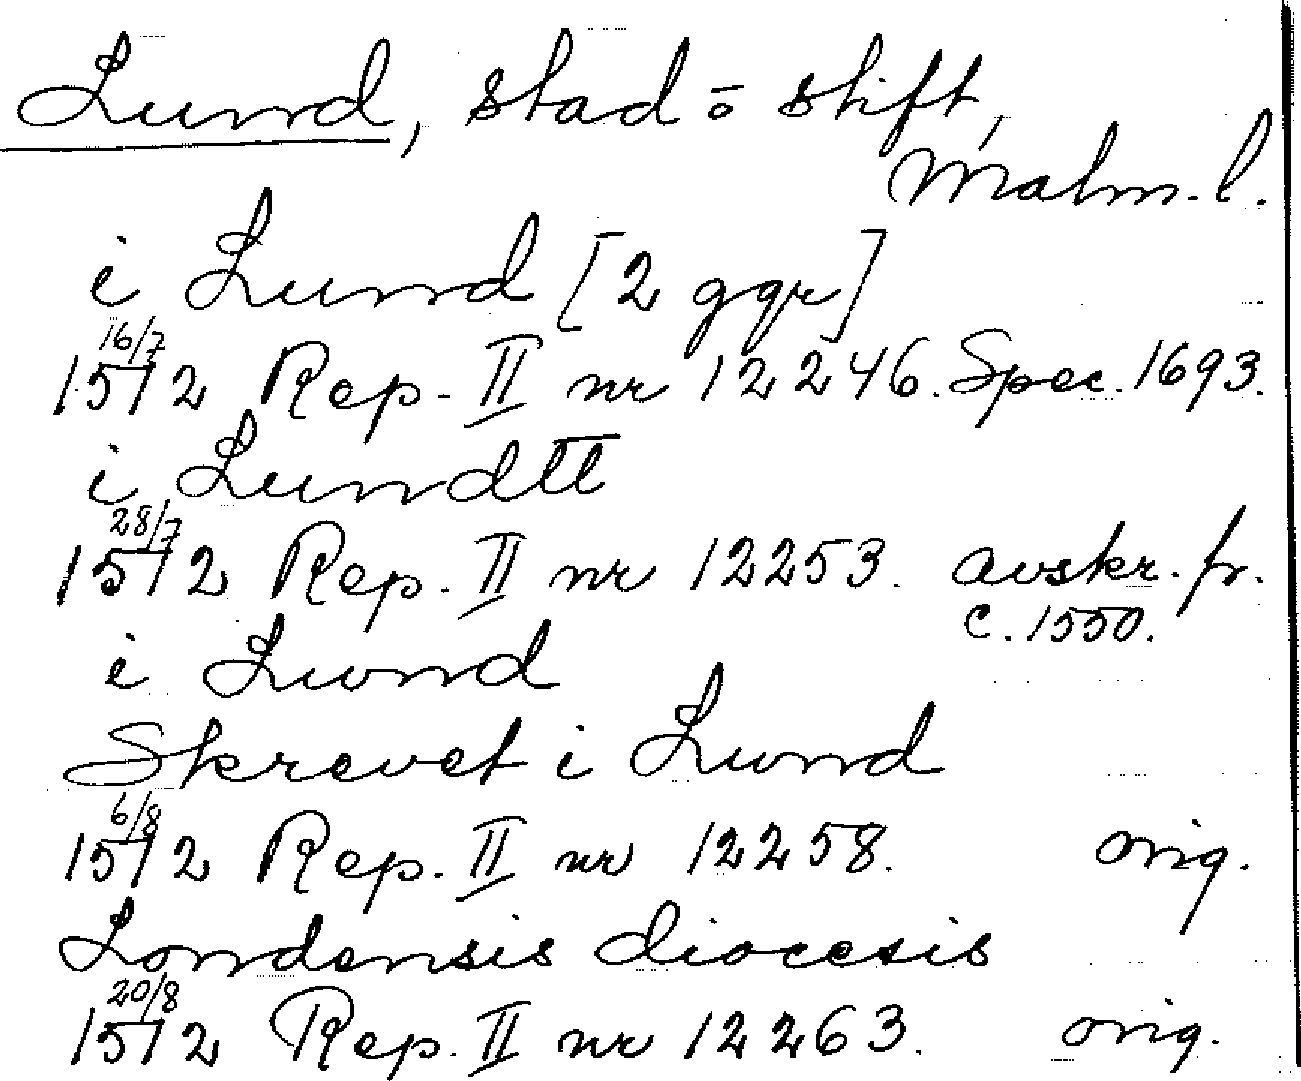 Lund, stad o stift,
Malm. l.
i Lund [2 ggr]
16/7
1512 Rep. II nr 12246. Spec. 1693.
i Lundtt
28/7
1512 Rep. II nr 12253. avskr. fr.
c. 1550.
i Lwnd
Skrevet i Lwnd
6/8
1512 Rep. II nr 12258. orig.
Londensis diocesis
20/8
1512 Rep. II nr 12263. orig.